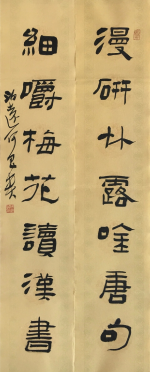 漫研竹露唫唐句
細嚼梅花讀漢書